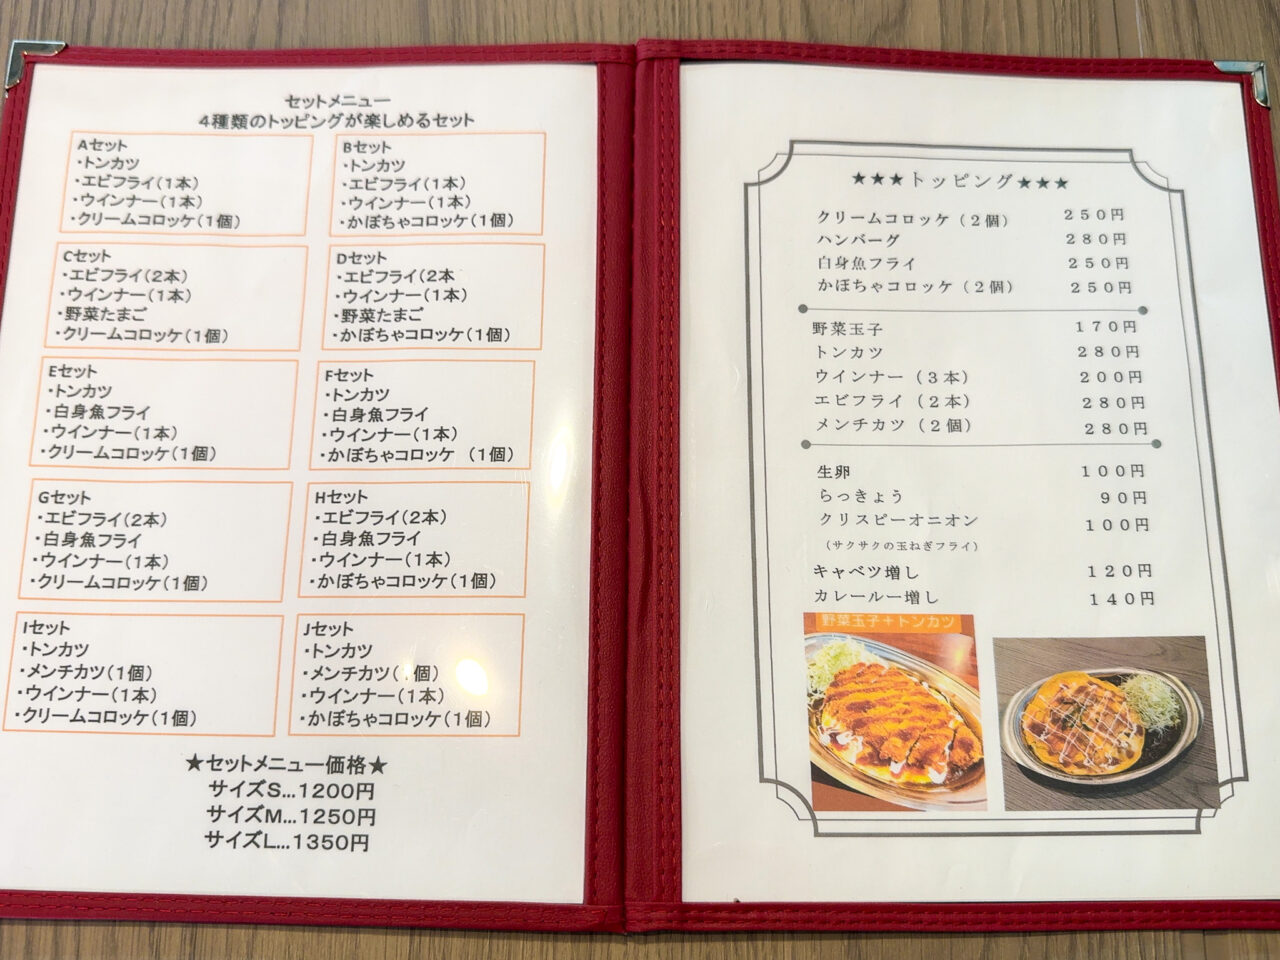 セットメニュー
4種類のトッピングが楽しめるセット
Aセット
・トンカツ
・エビフライ(1本)
・ウインナー(1本)
・クリームコロッケ(1個)
Bセット
・トンカツ
・エビフライ(1本)
・ウインナー(1本)
・かぼちゃコロッケ(1個)
Cセット
・エビフライ(2本)
・ウインナー(1本)
・野菜たまご
・クリームコロッケ(1個)
Dセット
・エビフライ(2本
・ウインナー(1本)
・野菜たまご
・かぼちゃコロッケ(1個)
Eセット
・トンカツ
・白身魚フライ
・ウインナー(1本)
・クリームコロッケ(1個)
Fセット
・トンカツ
・白身魚フライ
・ウインナー(1本)
・かぼちゃコロッケ (1個)
Gセット
・エビフライ(2本)
・白身魚フライ
・ウインナー(1本)
・クリームコロッケ(1個)
Hセット
・エビフライ(2本)
・白身魚フライ
・ウインナー(1本)
・かぼちゃコロッケ(1個)
Iセット
・トンカツ
・メンチカツ(1個)
・ウインナー(1本)
・クリームコロッケ(1個)
Jセット
・トンカツ
・メンチカツ(1個)
・ウインナー(1本)
・かぼちゃコロッケ(1個)
★セットメニュー価格★
サイズS…1200円
サイズM…1250円
サイズL…1350円
★★★トッピング★★★
クリームコロッケ(2個) 250円
ハンバーグ 280円
白身魚フライ 250円
かぼちゃコロッケ(2個) 250円
野菜玉子 170円
トンカツ 280円
ウインナー(3本) 200円
エビフライ(2本) 280円
メンチカツ(2個) 280円
生卵 100円
らっきょう 90円
クリスピーオニオン 100円
(サクサクの玉ねぎフライ)
キャベツ増し 120円
カレールー増し 140円
野菜玉子+トンカツ